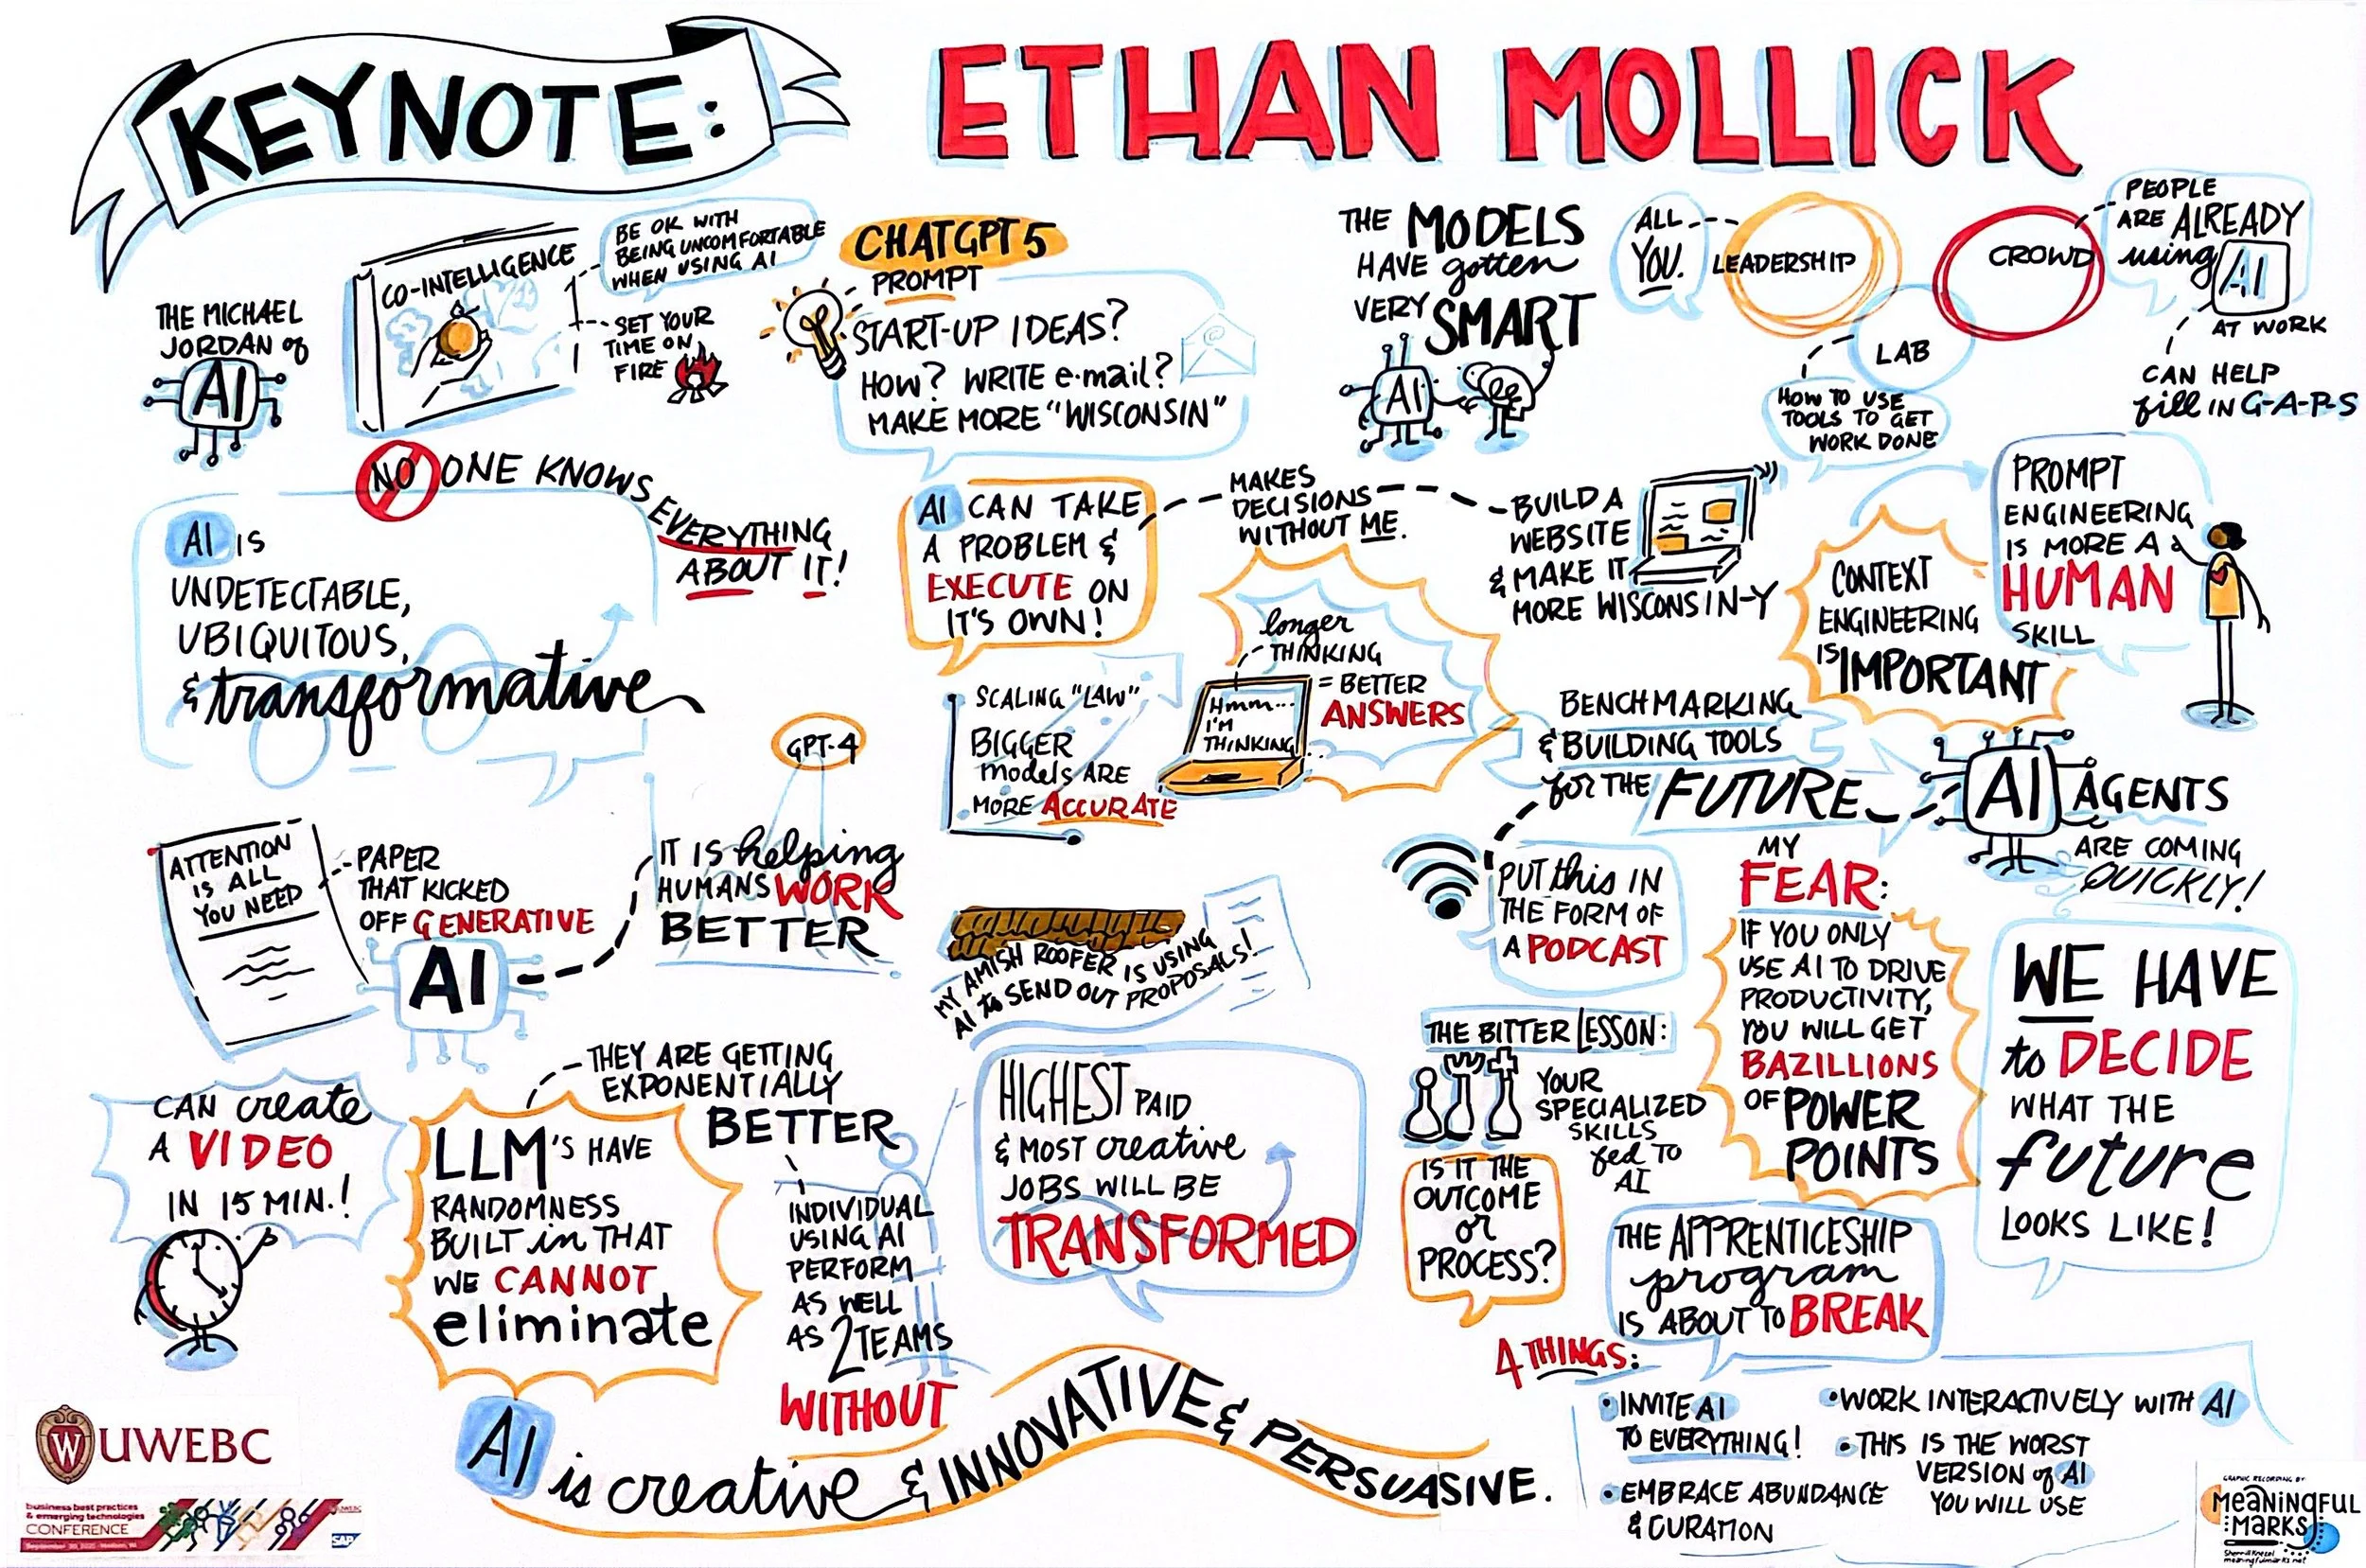 KEYNOTE:
ETHAN MOLLICK
THE MICHAEL
JORDAN of
AI
CO-INTELLIGENCE
BE OK WITH
BEING UNCOMFORTABLE
WHEN USING AI
SET YOUR
TIME ON
FIRE
CHATGPT 5
PROMPT
START-UP IDEAS?
HOW? WRITE e-mail?
MAKE MORE "WISCONSIN"
THE MODELS
HAVE gotten
VERY SMART
AI
ALL
YOU.
LEADERSHIP
CROWD
LAB
PEOPLE
ARE ALREADY
using AI
AT WORK
CAN HELP
fill IN G-A-P-S
HOW TO USE
TOOLS TO GET
WORK DONE
NO ONE KNOWS
EVERYTHING
ABOUT IT!
AI IS
UNDETECTABLE,
UBIQUITOUS,
& transformative
AI CAN TAKE
A PROBLEM &
EXECUTE ON
IT'S OWN!
MAKES
DECISIONS
WITHOUT ME.
BUILD A
WEBSITE
& MAKE IT
MORE WISCONSIN-Y
CONTEXT
ENGINEERING
IS IMPORTANT
PROMPT
ENGINEERING
IS MORE A
HUMAN
SKILL
SCALING "LAW"
BIGGER
models ARE
MORE ACCURATE
longer
THINKING
= BETTER
ANSWERS
Hmm...
I'M
THINKING
BENCHMARKING
& BUILDING TOOLS
for THE FUTURE
AI AGENTS
ARE COMING
QUICKLY!
ATTENTION
IS ALL
YOU NEED
PAPER
THAT KICKED
OFF GENERATIVE
AI
GPT-4
IT IS helping
HUMANS WORK
BETTER
MY AMISH ROOFER IS USING
AI to SEND OUT PROPOSALS!
PUT this IN
THE FORM OF
A PODCAST
MY
FEAR:
IF YOU ONLY
USE AI TO DRIVE
PRODUCTIVITY,
YOU WILL GET
BAZILLIONS
OF POWER
POINTS
WE HAVE
to DECIDE
WHAT THE
future
LOOKS LIKE!
CAN create
A VIDEO
IN 15 MIN.!
LLM'S HAVE
RANDOMNESS
BUILT in THAT
WE CANNOT
eliminate
THEY ARE GETTING
EXPONENTIALLY
BETTER
INDIVIDUAL
USING AI
PERFORM
AS WELL
AS 2 TEAMS
WITHOUT
HIGHEST PAID
& MOST creative
JOBS WILL BE
TRANSFORMED
THE BITTER LESSON:
YOUR
SPECIALIZED
SKILLS
fed TO
AI
IS IT THE
OUTCOME
or
PROCESS?
THE APPRENTICESHIP
program
IS ABOUT TO BREAK
AI is creative & INNOVATIVE & PERSUASIVE.
4 THINGS:
• INVITE AI
TO EVERYTHING!
• EMBRACE ABUNDANCE
& CURATION
• WORK INTERACTIVELY WITH AI
• THIS IS THE WORST
VERSION of AI
YOU WILL USE
W UWEBC
business best practices
& emerging technologies
CONFERENCE
SAP
GRAPHIC RECORDING BY
MEANINGFUL
MARKS